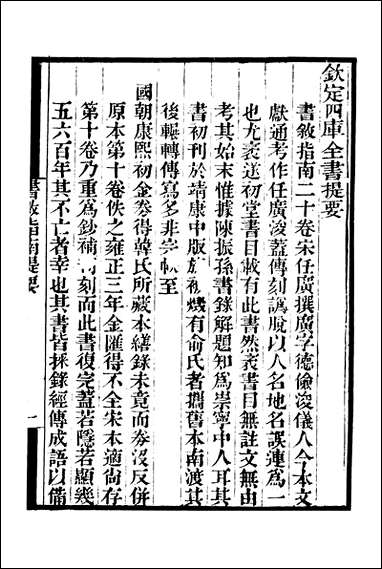 欽定四庫全書提要
書敘指南二十卷宋任廣撰廣字德儉浚儀人今本文
獻通考作任廣浚蓋傳刻譌脫以人名地名誤連為一
也尤袤遂初堂書目載有此書然袤書目無註文無由
考其始末惟據陳振孫書錄解題知為崇寧中人耳其
書初刊於靖康中版旋燬有俞氏者攜舊本南渡其
後輾轉傳寫多非完帙至
國朝康熙初金劵得韓氏所藏本繕錄未竟而劵沒反併
原本第十卷佚之雍正三年金匯得不全宋本適尚存
第十卷乃重為鈔補刻而此書復完蓋若隱若顯幾
五六百年其不亡者幸也其書皆採錄經傳成語以備
書敘指南提要
一